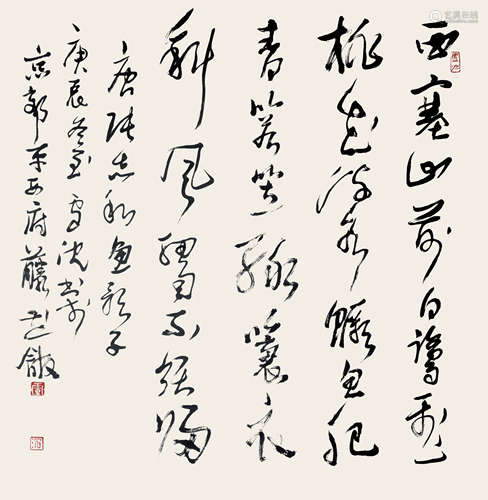 西塞山前白鹭飞
桃花流水鳜鱼肥
青箬笠绿蓑衣
斜风细雨不须归
唐张志和渔歌子
庚辰冬至雪沈书于
京都平西府藤